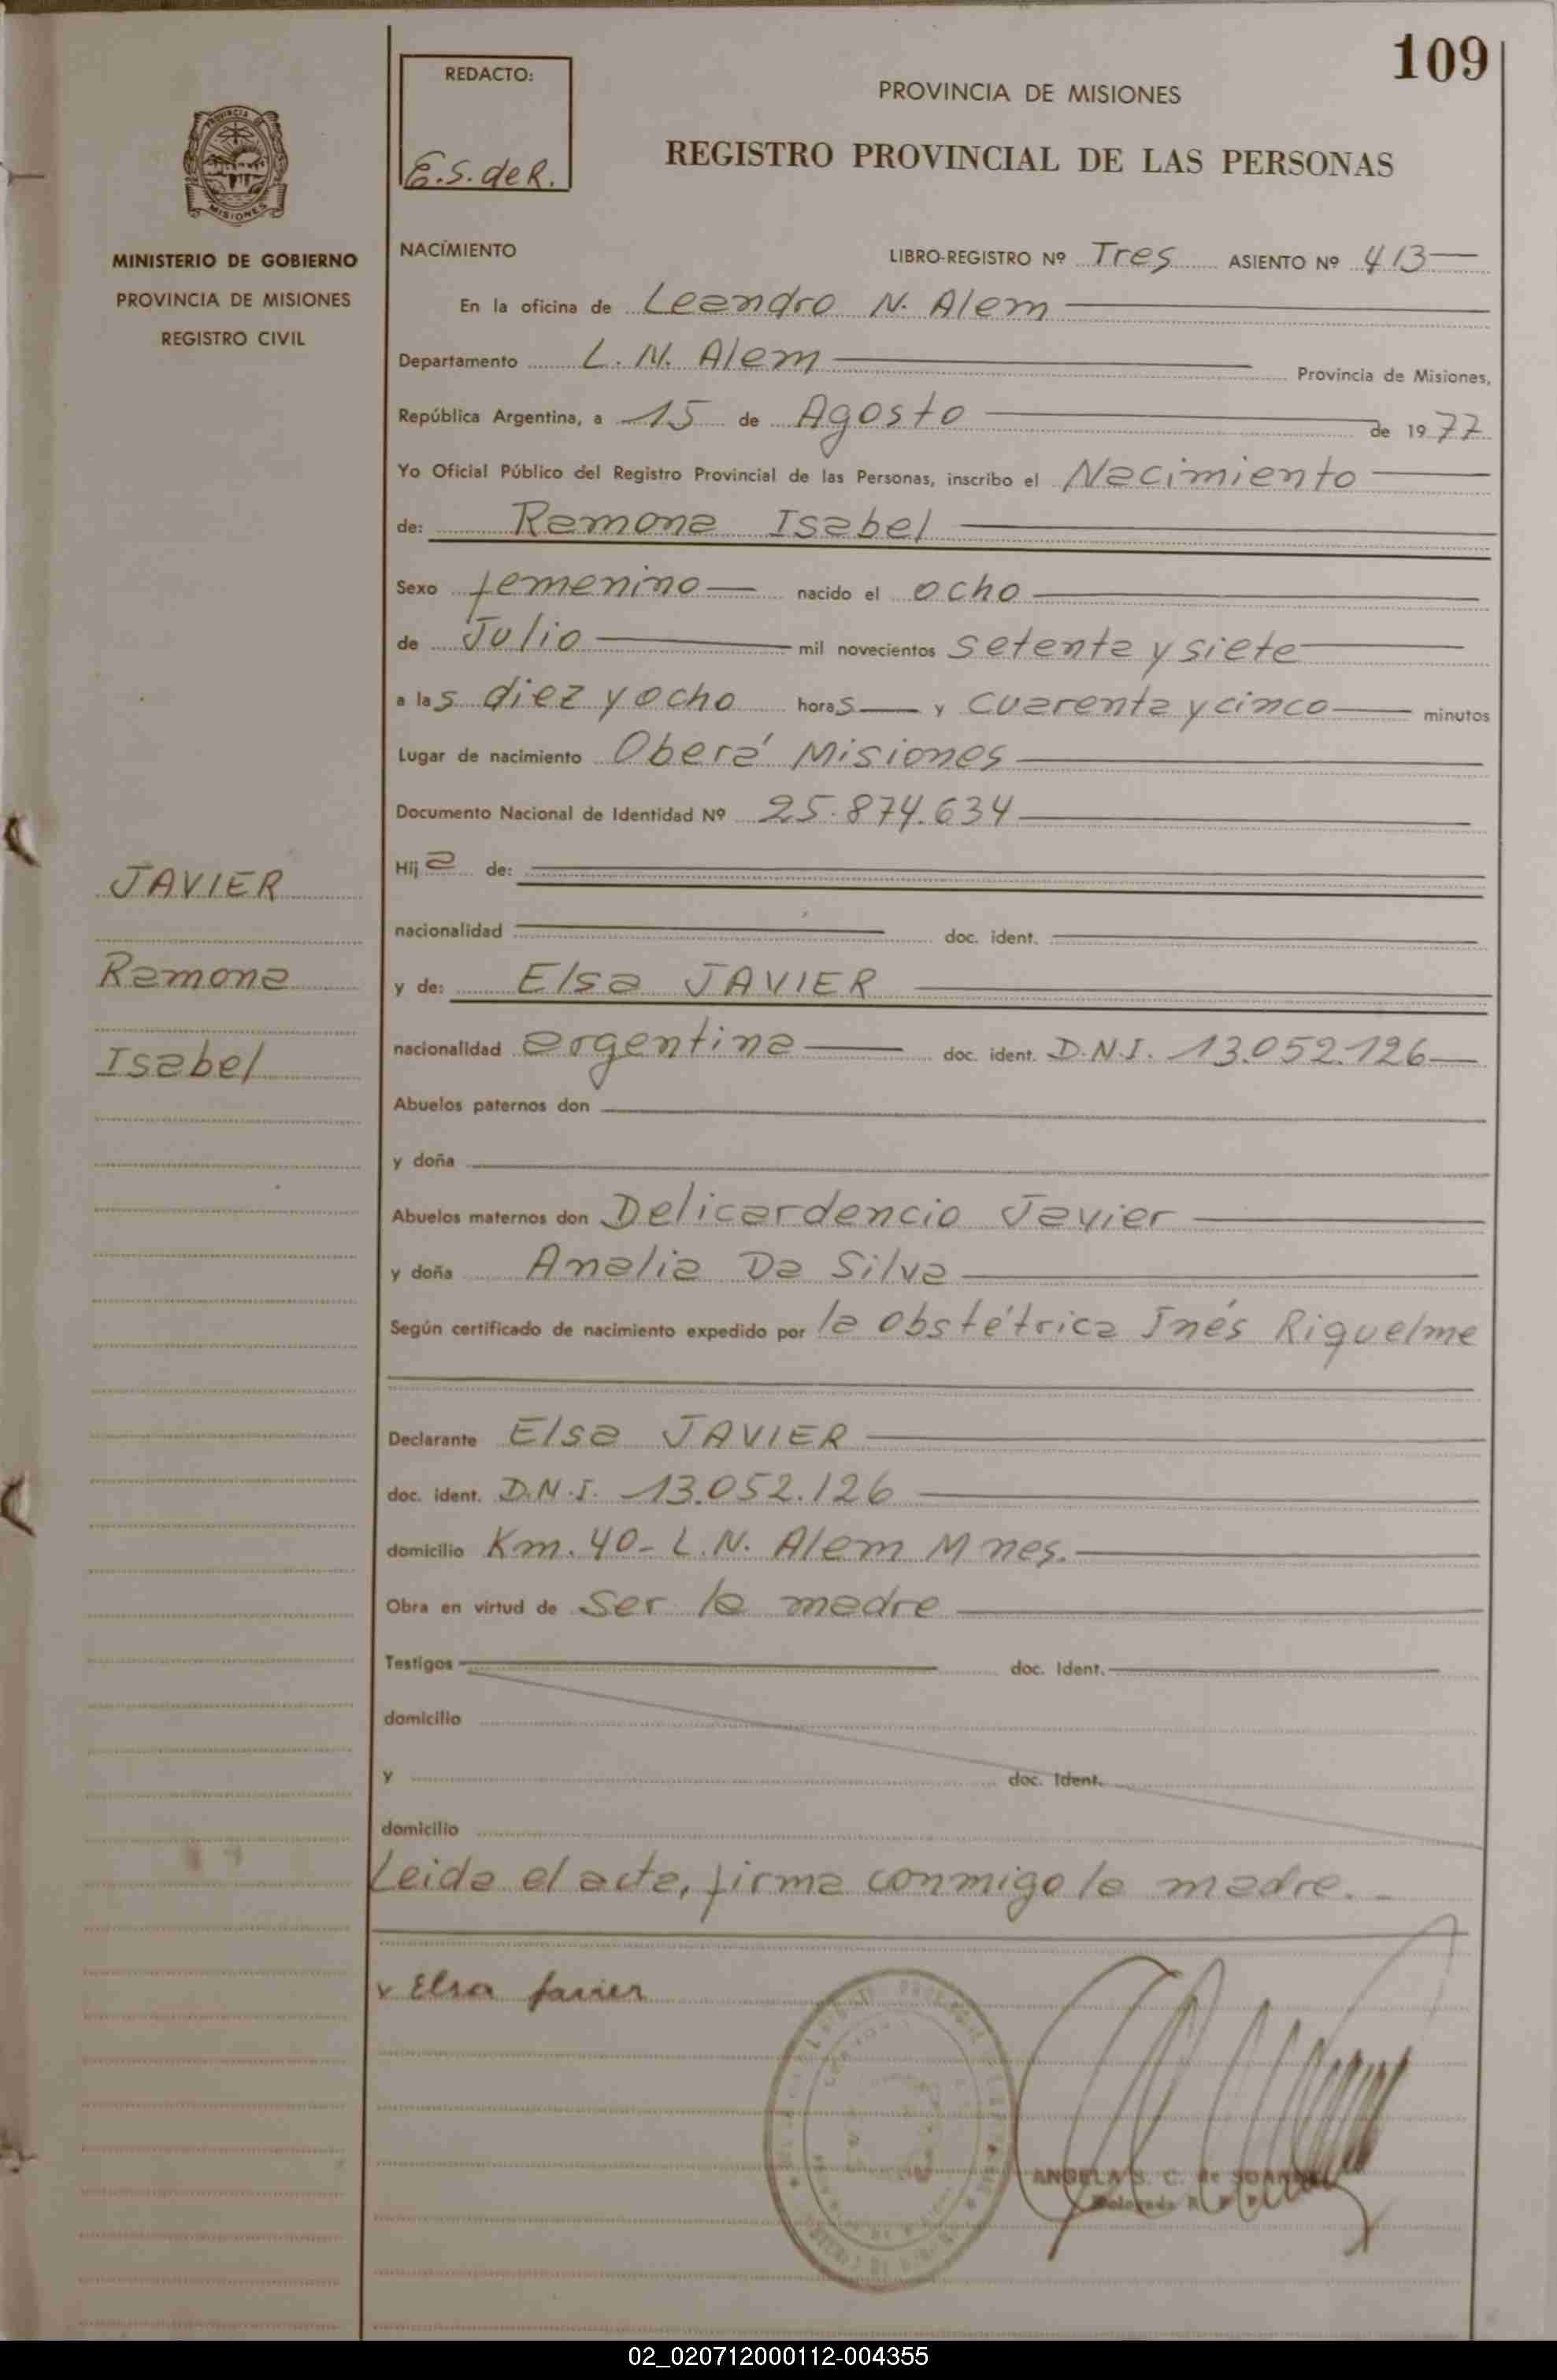 109
REDACTO:
E.S. de R.
PROVINCIA DE MISIONES
REGISTRO PROVINCIAL DE LAS PERSONAS
PROVINCIA
MISIONES
MINISTERIO DE GOBIERNO
PROVINCIA DE MISIONES
REGISTRO CIVIL
NACIMIENTO LIBRO-REGISTRO Nº Tres ASIENTO Nº 413
En la oficina de Leandro N. Alem
Departamento L. N. Alem Provincia de Misiones,
República Argentina, a 15 de Agosto de 1977
Yo Oficial Público del Registro Provincial de las Personas, inscribo el Nacimiento
de: Ramona Isabel
Sexo femenino nacido el ocho
de Julio mil novecientos setenta y siete
a las diez y ocho horas y cuarenta y cinco minutos
Lugar de nacimiento Oberá Misiones
Documento Nacional de Identidad Nº 25.874.634
Hija de:
nacionalidad doc. ident.
y de: Elsa JAVIER
nacionalidad argentina doc. ident. D.N.I. 13.052.126
Abuelos paternos don
y doña
Abuelos maternos don Delicardencio Javier
y doña Analia Da Silva
Según certificado de nacimiento expedido por la Obstétrica Inés Riquelme
Declarante Elsa JAVIER
doc. ident. D.N.I. 13.052.126
domicilio Km. 40 - L.N. Alem Mnes.
Obra en virtud de ser la madre
Testigos doc. Ident.
domicilio
y doc. Ident.
domicilio
Leida el acta, firma conmigo la madre. -
Elsa Javier
ANGELA S. C. de
JAVIER
Ramona
Isabel
02_020712000112-004355